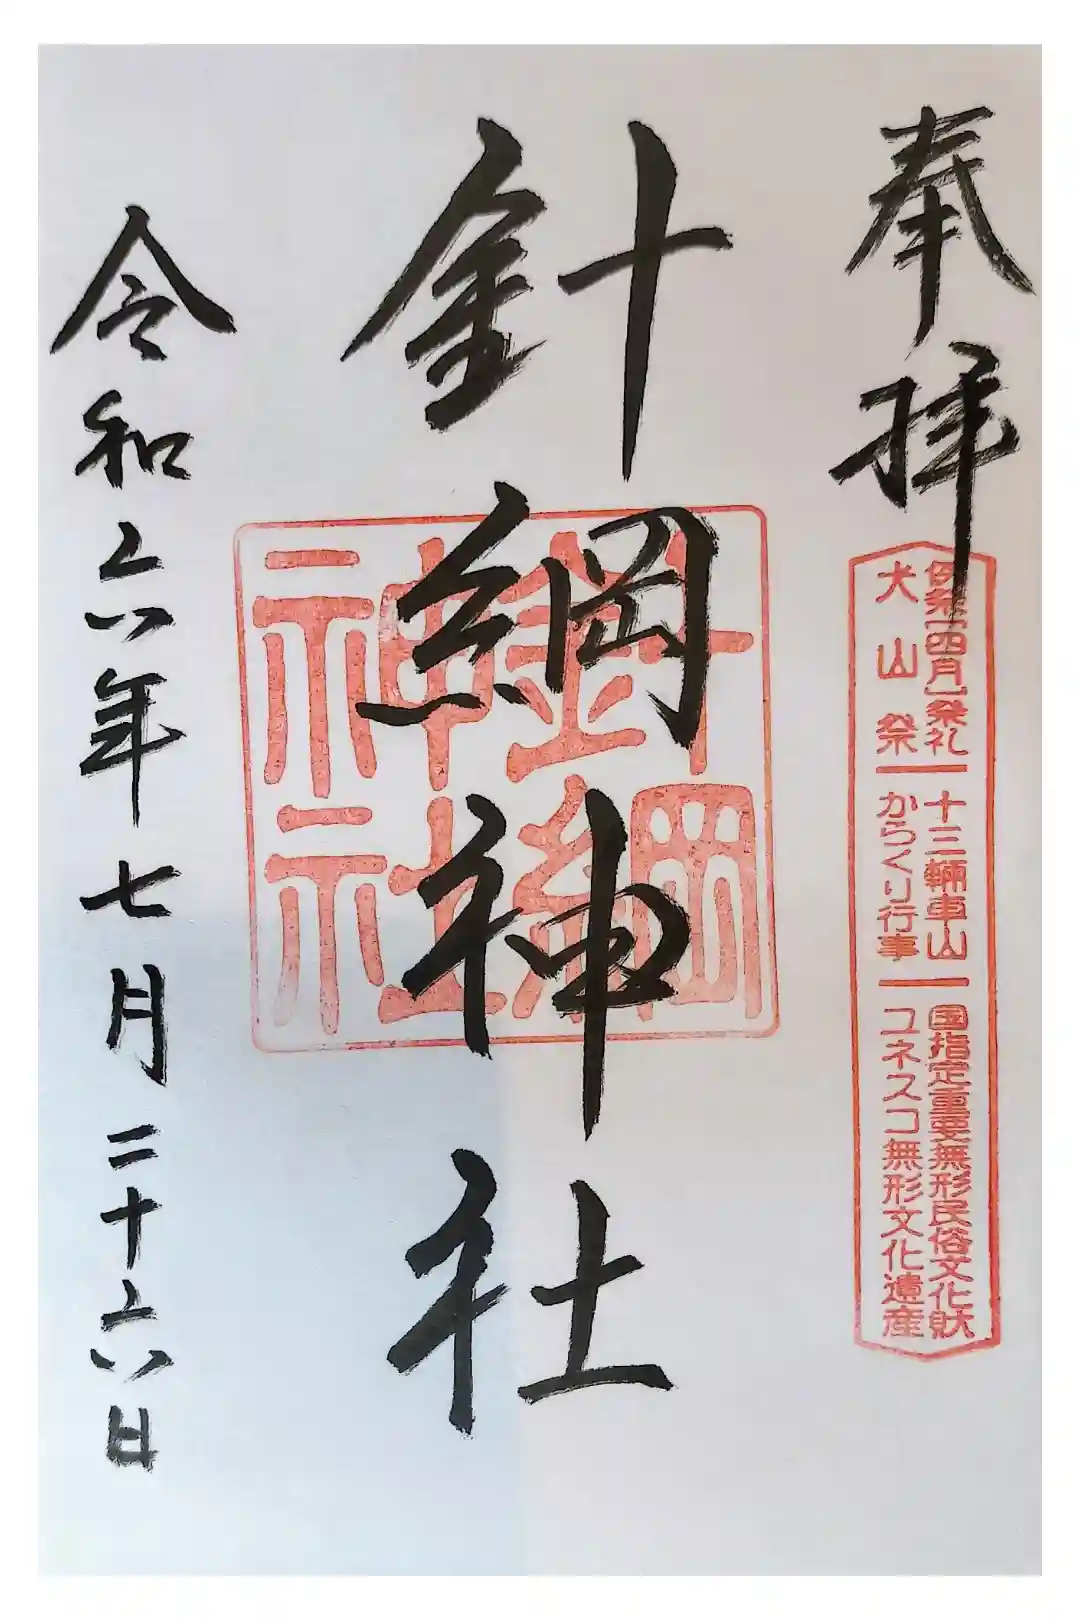 奉拝
例祭［四月］祭礼｜十三輛車山｜国指定重要無形民俗文化財
犬山祭｜からくり行事｜ユネスコ無形文化遺産
針綱神社
針綱
神社
令和六年七月二十六日